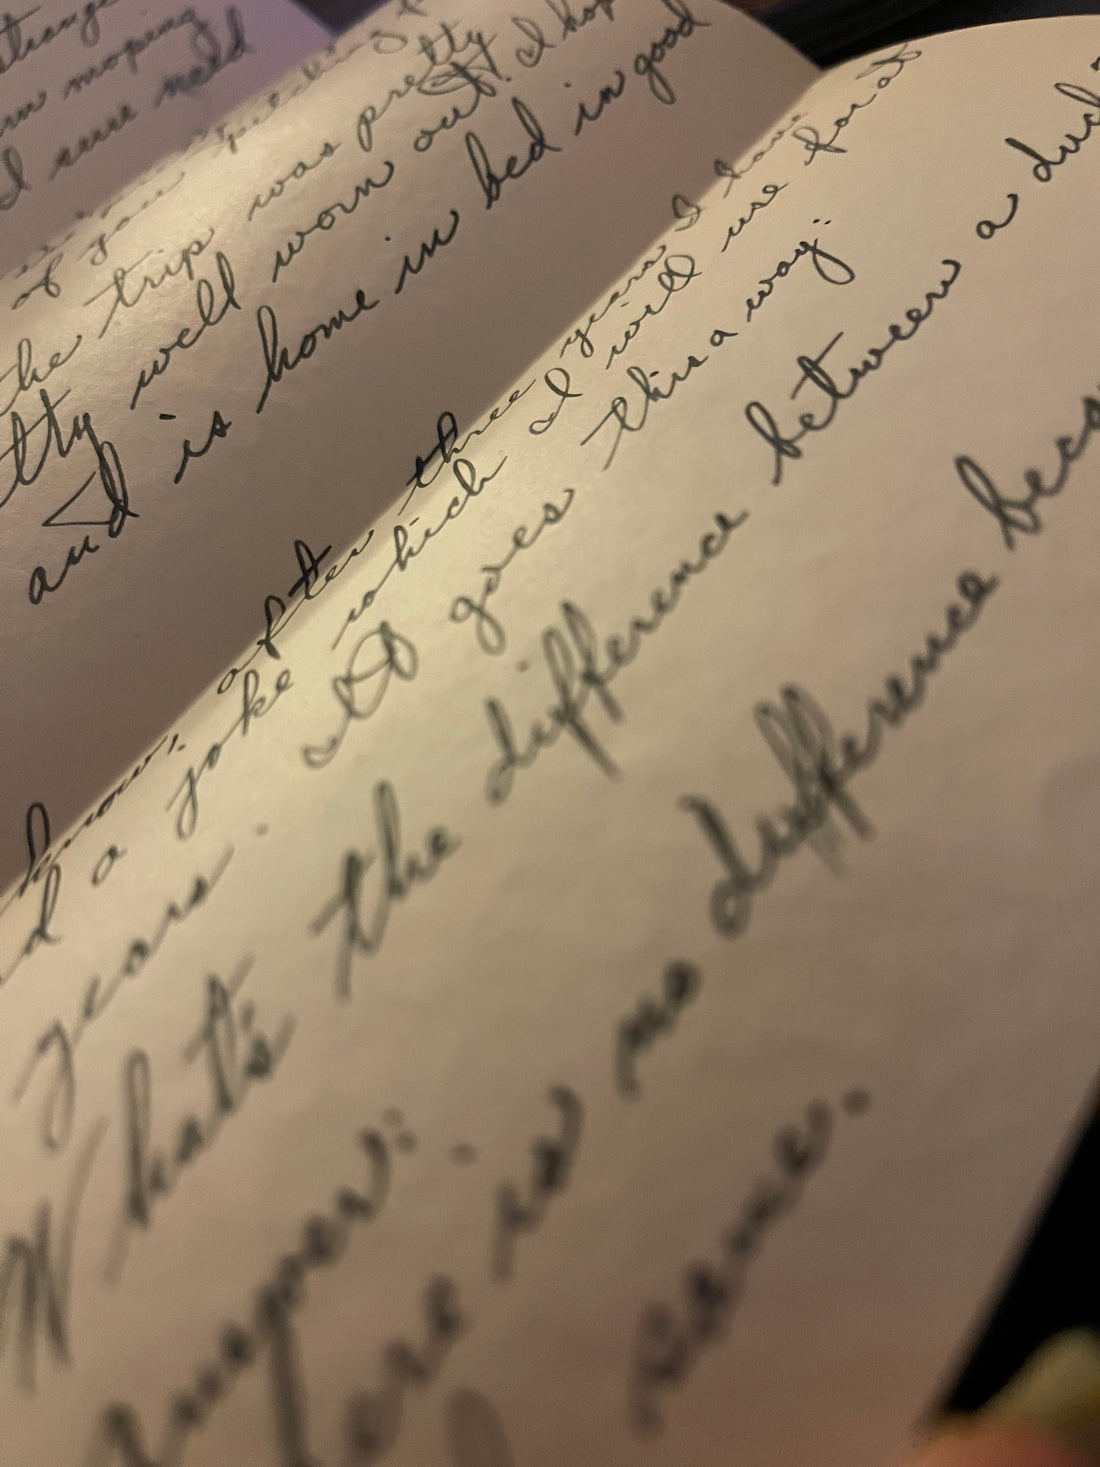 strange
moping
I sure need
of your
the trip was pretty
tty well worn out. I hop
and is home in bed in good
know, after three years I have
d a joke which I will use for at
years. It goes this a way:
What's the difference between a duck
Answer:
ere is no difference beca
same.